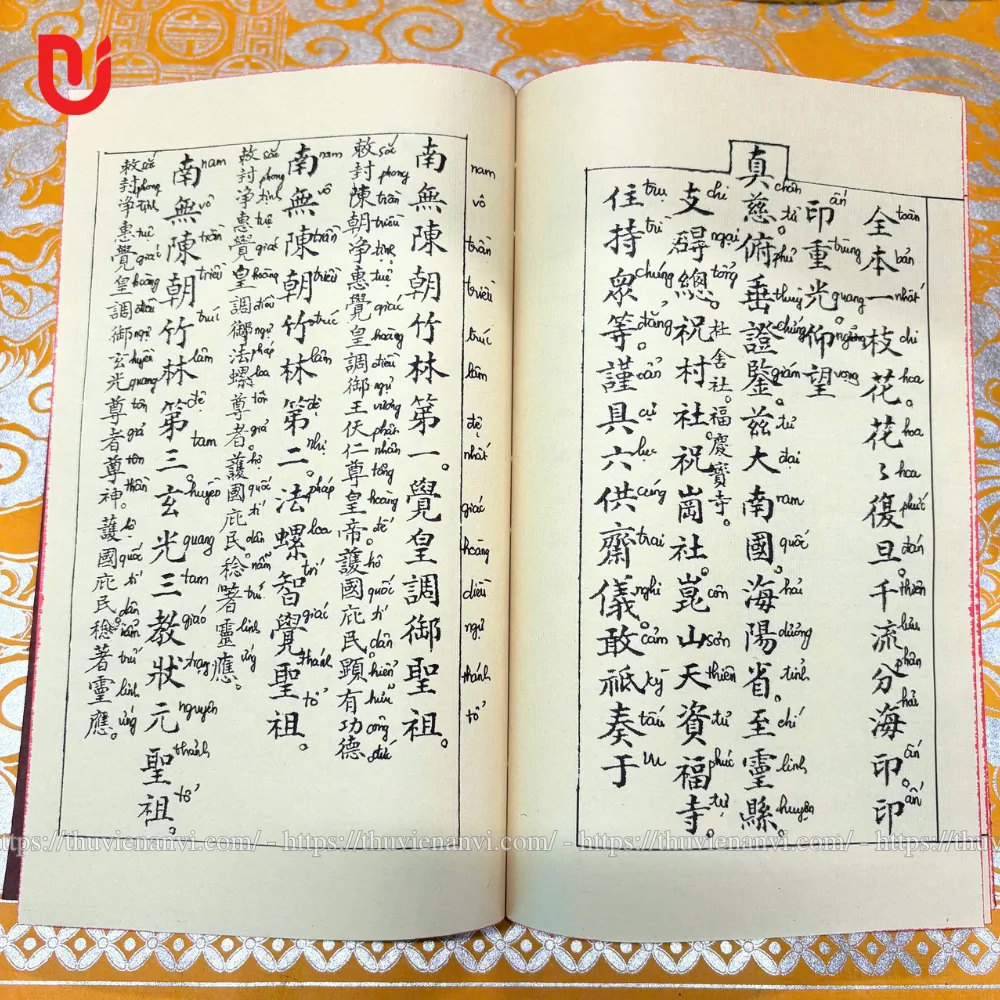 全本一枝花。花〻復旦。千流分海印。印
toàn bản nhất chi hoa hoa hoa phức đán thiên lưu phân hải ấn ấn
印重光仰望
ấn trùng quang ngưỡng vọng
真慈。俯垂證鑒。茲大南國。海陽省。至靈縣
chân từ phủ thuỳ chứng giám tư đại nam quốc hải dương tỉnh chí linh huyện
杜舍社。福慶寳寺。
支碍總。祝村社。祝崗社。崑山天資福寺。
chi ngại tổng côn sơn thiên tử phúc tự
住持眾等。謹具六供齋儀敢祇奏于
trụ trì chúng đẳng cẩn cụ lục cúng trai nghi cảm kỳ tấu vu
南無陳朝竹林第一。覺皇調御聖祖。
nam vô trần triều trúc lâm đệ nhất giác hoàng điều ngự thánh tổ
敕封陳朝净惠覺皇調御王伏仁尊皇帝。護國庇民。顕有功德
sắc phong trần triều tịnh tuệ giác hoàng điều ngự vương phật nhân tông hoàng đế hộ quốc tí dân hiển hữu công đức
南無陳朝竹林第二。法螺智覺聖祖。
nam vô trần triều trúc lâm đệ nhị pháp loa trí giác thánh tổ
敕封净惠覺皇調御法螺尊者。護國庇民。稔著靈應。
sắc phong tịnh tuệ giác hoàng điều ngự pháp loa tôn giả hộ quốc tí dân nẫm trứ linh ứng
南無陳朝竹林第三玄光三教狀元聖祖。
nam vô trần triều trúc lâm đệ tam huyền quang tam giáo trạng nguyên thánh tổ
敕封净惠覺皇調御玄光尊者尊神。護國庇民。稔著靈應。
sắc phong tịnh tuệ giác hoàng điều ngự huyền quang tôn giả tôn thần hộ quốc tí dân nẫm trứ linh ứng
https://thuvienanvi.com/ - https://thuvienanvi.com/ - https://thuvienanvi.com/ - https://thuvienanvi.com/